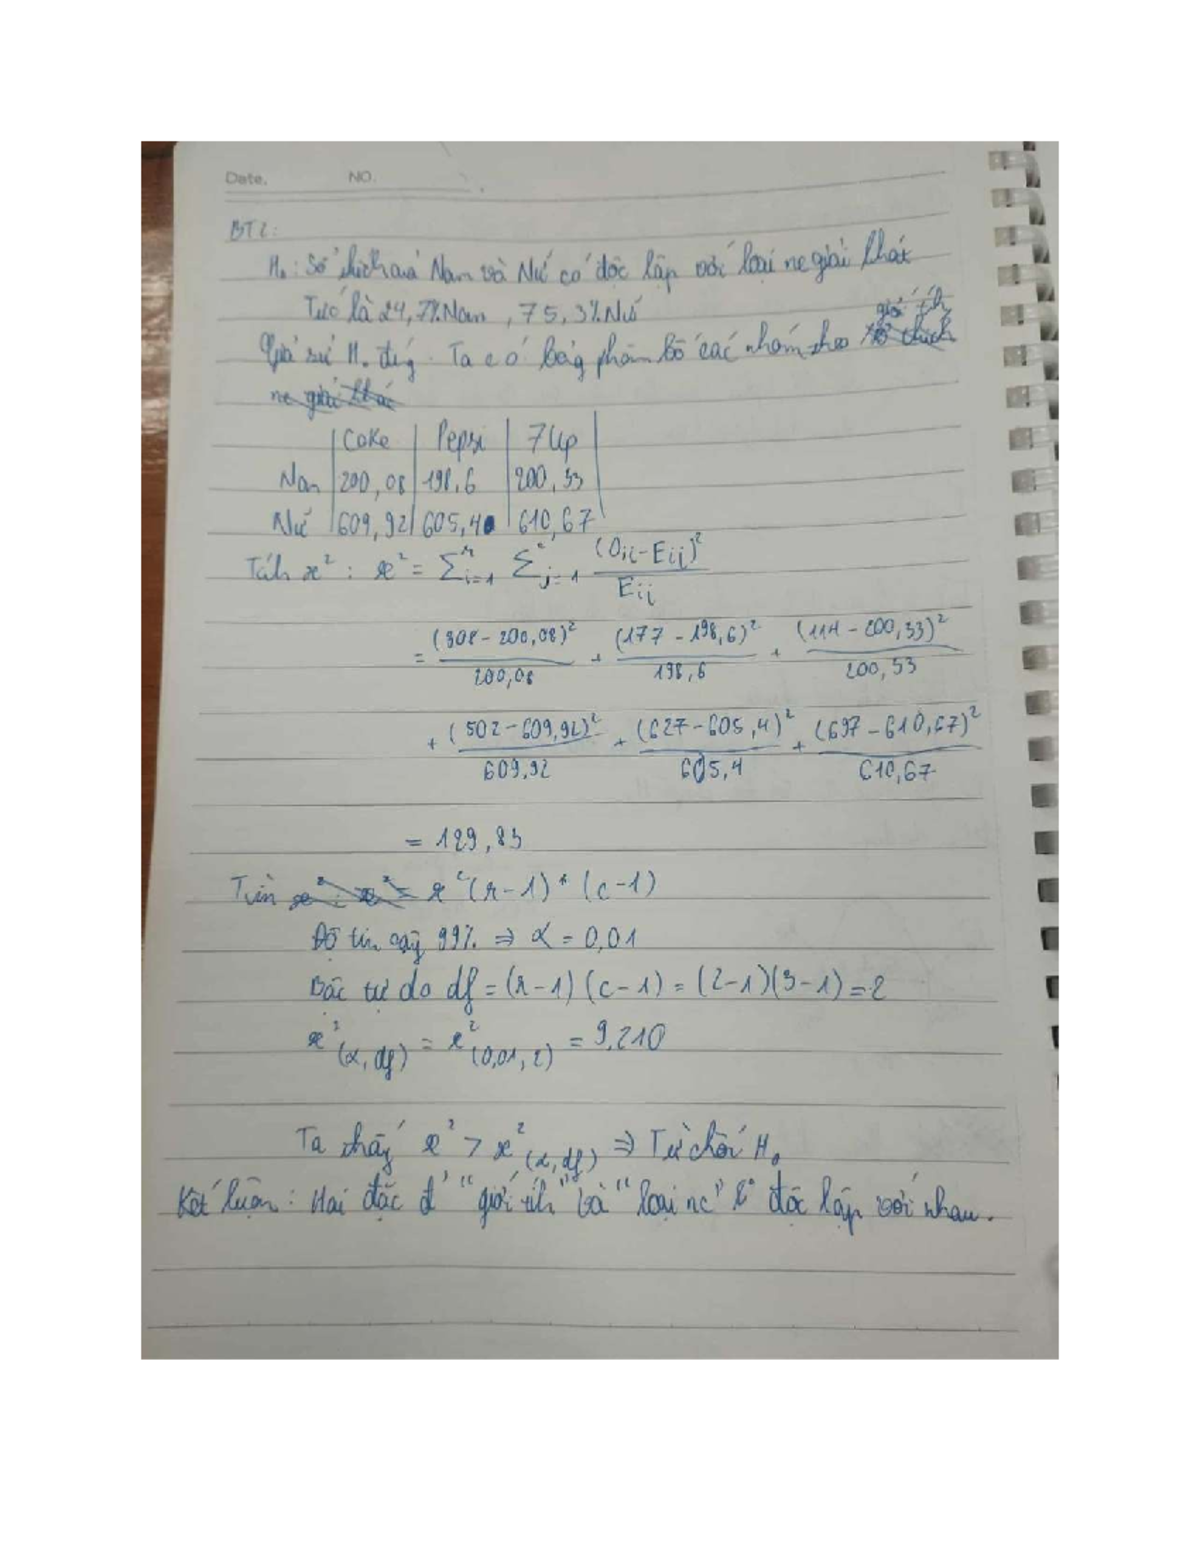 Date. NO.
BT2:
H₀: Sở thích của Nam và Nữ có độc lập với loại nc giải khát
Tức là 24,7% Nam, 75,3% Nữ
giới tính
Giả sử H₀ đúg. Ta có bảg phân bố các nhóm theo
nc giải khát
Coke | Pepsi | 7Up
Nam | 200,08 | 198,6 | 200,33
Nữ | 609,92 | 605,4 | 610,67
Tính x² : x² = Σʳi=1 Σᶜj=1 (Oij - Eij)² / Eij
= (308 - 200,08)² / 200,08 + (177 - 198,6)² / 198,6 + (114 - 200,33)² / 200,33
+ (502 - 609,92)² / 609,92 + (627 - 605,4)² / 605,4 + (697 - 610,67)² / 610,67
= 129,83
x² (r-1) * (c-1)
Độ tin cậy 99% ⇒ α = 0,01
Bậc tự do df = (r-1) (c-1) = (2-1)(3-1) = 2
x²(α, df) = x²(0,01, 2) = 9,210
Ta thấy x² > x²(α, df) ⇒ Từ chối H₀
Kết luận: Hai đặc đ' "giới tính" và "loại nc" k° độc lập với nhau.